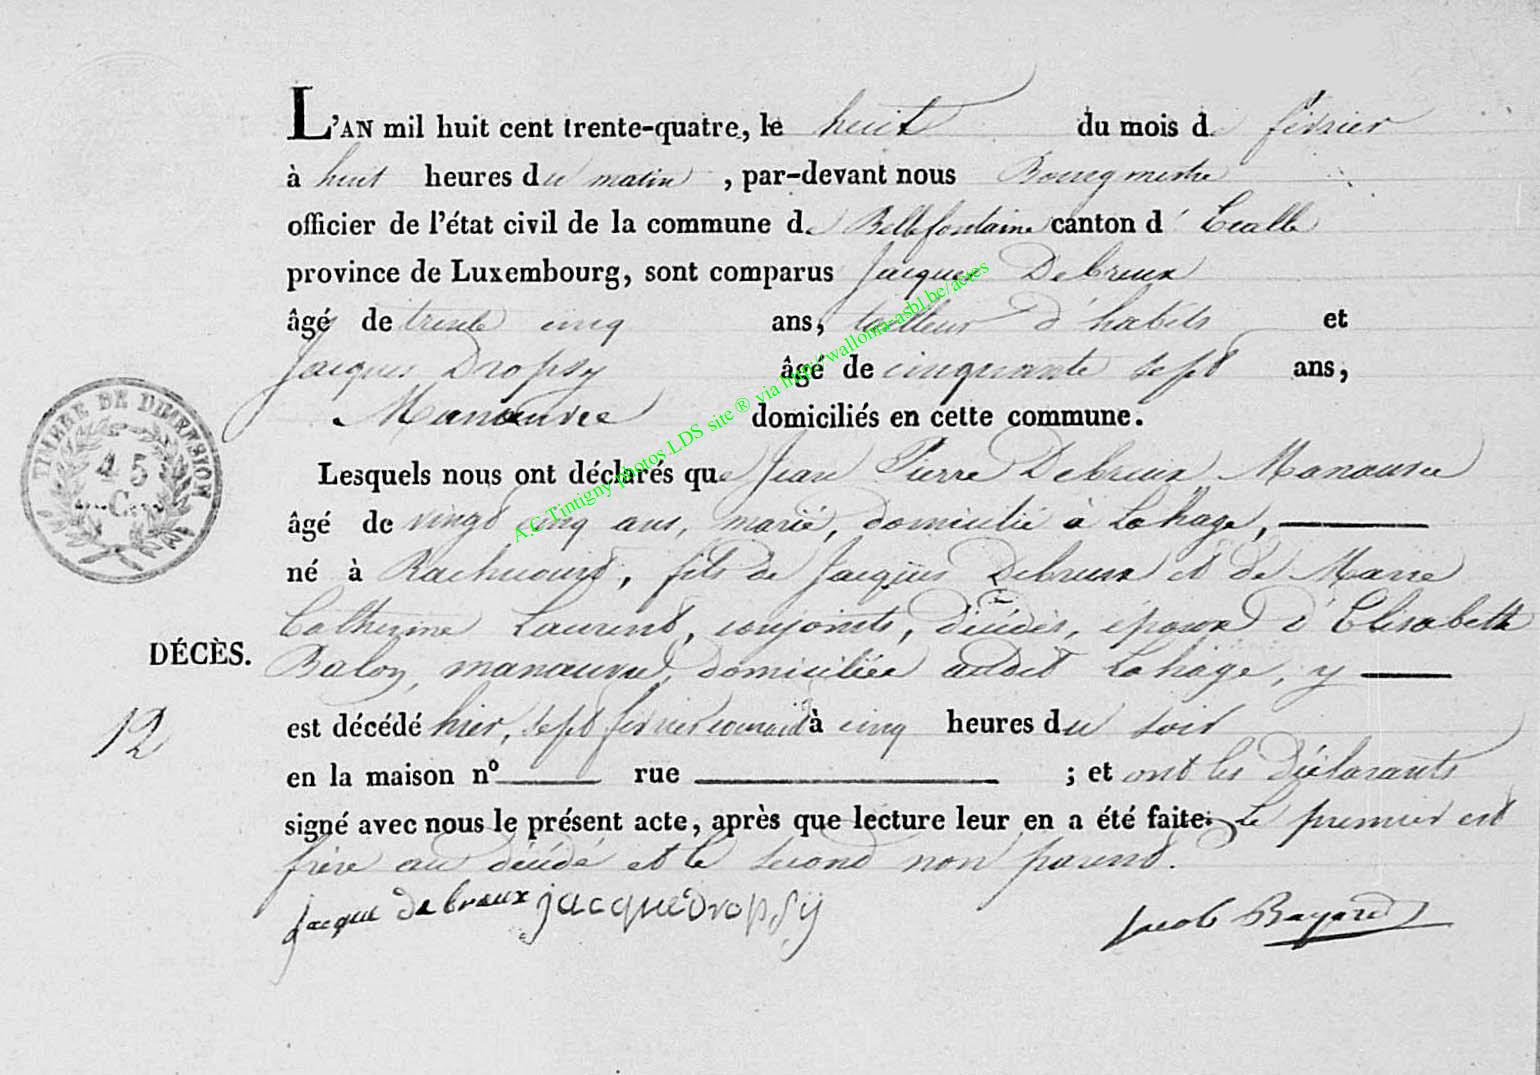 L'AN mil huit cent trente-quatre, le huit du mois de février
à huit heures du matin, par-devant nous Bourgmestre
officier de l'état civil de la commune de Bellefontaine canton d' Etalle
province de Luxembourg, sont comparus Jacques Debreux
âgé de trente cinq ans, tailleur d'habits et
Jacques Dropsy âgé de cinquante sept ans,
Manœuvre domiciliés en cette commune.
Lesquels nous ont déclarés que Jean Pierre Debreux, Manœuvre
âgé de vingt cinq ans, marié, domicilié à Lahage,
né à Rachecourt, fils de Jacques Debreux et de Marie
Catherine Laurent, conjoints, décédés, époux d'Elisabeth
DÉCÈS. Balon, manœuvre, domiciliée audit Lahage, y
12 est décédé hier, sept février courant à cinq heures du soir
en la maison nº rue ; et ont les déclarants
signé avec nous le présent acte, après que lecture leur en a été faite. Le premier est
frère au décédé et le second non parent.
jacque debreux jacque Dropsÿ Jacob Bayard
TIMBRE DE DIMENSION
45
A.C Tintigny photos LDS site ® via http://wallonia-asbl.be/actes